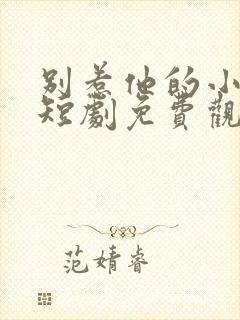 别惹他的小
短劇免費觀
范婧睿